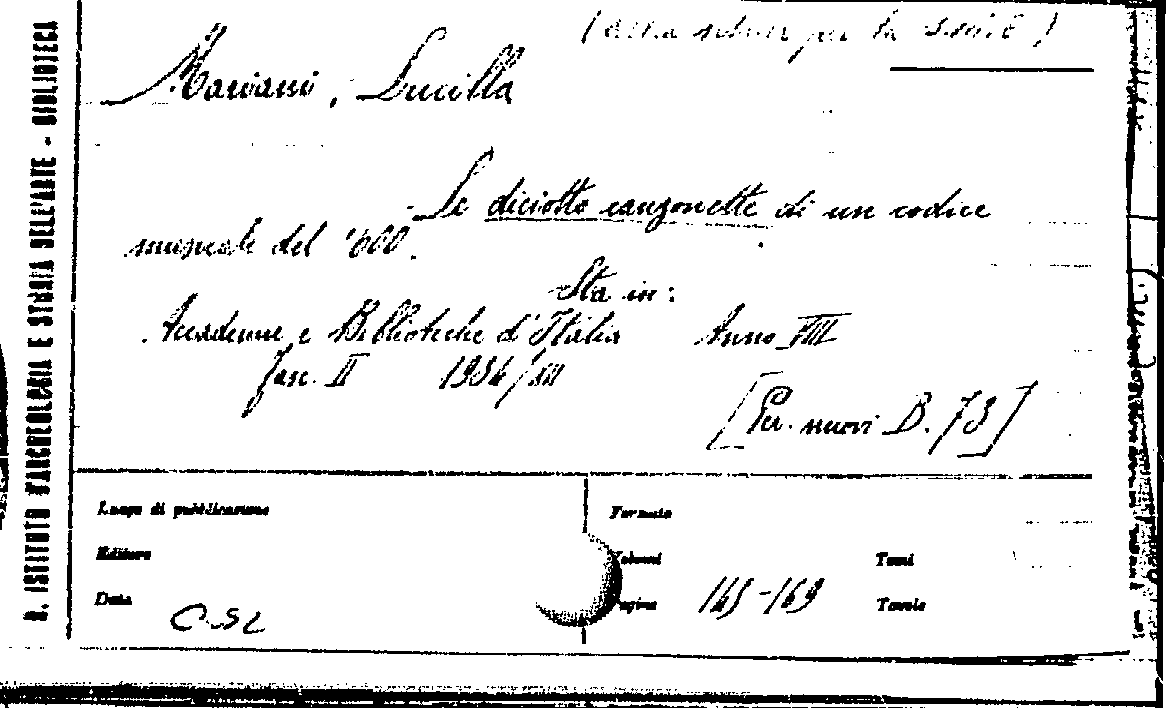 R. ISTITUTO D'ARCHEOLOGIA E STORIA DELL'ARTE - BIBLIOTECA
per la
Mariani, Lucilla
Le diciotto canzonette di un codice
musicale del '600.
Sta in:
Accademie e Biblioteche d'Italia Anno VIII
Fasc. II 1934/XII
[Per. nuovi B. 73]
Luogo di pubblicazione
Formato
Editore
Volumi
Tomi
Data
Pagine 165-169
Tavole